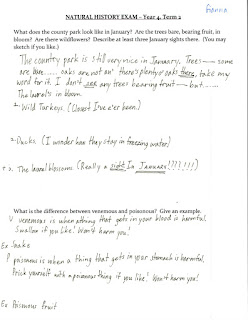 Gianna
NATURAL HISTORY EXAM - Year 4, Term 2
What does the county park look like in January? Are the trees bare, bearing fruit, in
bloom? Are there wildflowers? Describe at least three January sights there. (You may
sketch if you like.)
The county park is still very nice in January. Trees — some
are bare.... oaks are not an' there's plenty o' oaks there, take my
word for it. I don't see any trees bearing fruit — but.....
The laurel's in bloom.
1. Wild Turkeys. (Closest I've e'er been.)
2. Ducks. (I wonder how they stay in freezing water)
3. The laurel blossom. (Really a sight In JANUARY!???!!!)
What is the difference between venemous and poisonous? Give an example.
V venemous is when a thing that gets in your blood is harmful.
Swallow if you like! Won't harm you!
Ex Snake
P poisonous is when a thing that gets in your stomach is harmful.
Prick yourself with a poisonous thing if you like! Won't harm you!
Ex Poisonous fruit